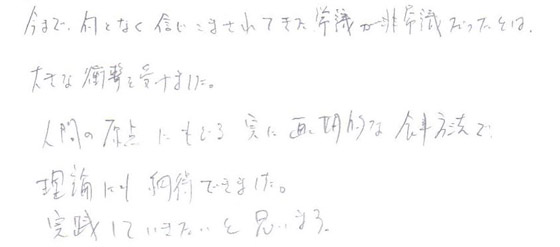 今まで、何となく信じこまされてきた常識が非常識だったとは、
大きな衝撃を受けました。
人間の原点にもどる実に画期的な食事方法で
理論的に納得できました。
実践していきたいと思います。